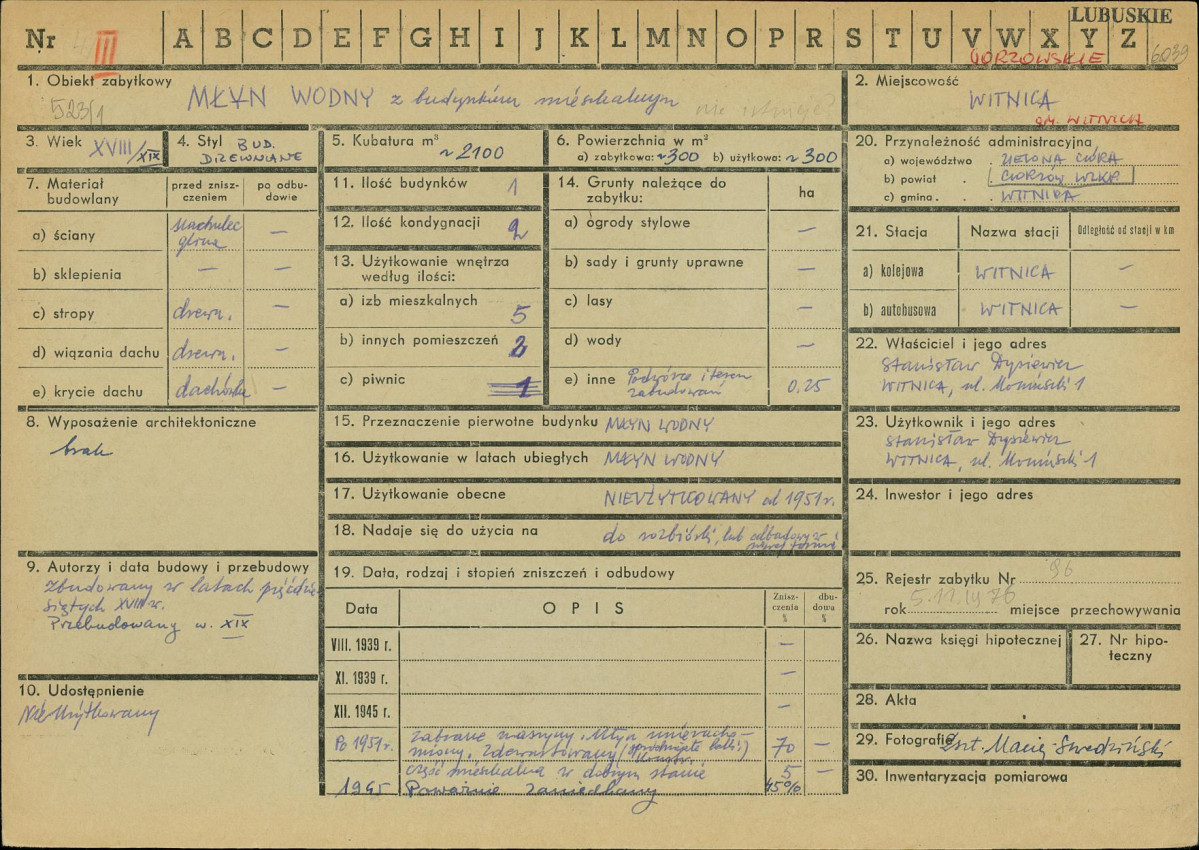 LUBUSKIE
Nr III A B C D E F G H I J K L M N O P R S T U V W X Y Z
GORZOWSKIE 6039
1. Obiekt zabytkowy
523/1
MŁYN WODNY z budynkiem mieszkalnym nie istnieje?
2. Miejscowość
WITNICA
gm. WITNICA
3. Wiek XVIII/XIX
4. Styl BUD.
DRZEWNIANE
5. Kubatura m³
~ 2100
6. Powierzchnia w m²
a) zabytkowa: ~300 b) użytkowa: ~ 300
7. Materiał
budowlany
przed znisz-
czeniem
po odbu-
dowie
a) ściany
glina –
b) sklepienia – –
c) stropy drewn. –
d) wiązania dachu drewn. –
e) krycie dachu dachówka –
8. Wyposażenie architektoniczne
brak
9. Autorzy i data budowy i przebudowy
Zbudowany w latach pięćdzie-
siątych XVIII w.
Przebudowany w. XIX
10. Udostępnienie
Nieużytkowany
11. Ilość budynków 1
12. Ilość kondygnacji 2
13. Użytkowanie wnętrza
według ilości:
a) izb mieszkalnych 5
b) innych pomieszczeń 2
c) piwnic 1
14. Grunty należące do
zabytku:
ha
a) ogrody stylowe –
b) sady i grunty uprawne –
c) lasy –
d) wody –
e) inne Podwórze i teren
zabudowań 0.25
15. Przeznaczenie pierwotne budynku MŁYN WODNY
16. Użytkowanie w latach ubiegłych MŁYN WODNY
17. Użytkowanie obecne NIEUŻYTKOWANY od 1951 r.
18. Nadaje się do użycia na do rozbiórki, lub odbudowy w
innej formie
19. Data, rodzaj i stopień zniszczeń i odbudowy
Data
OPIS
Znisz-
czenia
%
dbu-
dowa
%
VIII. 1939 r. –
XI. 1939 r. –
XII. 1945 r. –
Po 1951 r. zabrane maszyny. Młyn unierucho-
miony, zdewastowany 70 –
część mieszkalna w dobrym stanie 5 –
Poważnie zaniedbany 45%
20. Przynależność administracyjna
a) województwo . ZIELONA GÓRA
b) powiat . . GORZÓW WLKP
c) gmina . . WITNICA
21. Stacja
Nazwa stacji
Odległość od stacji w km
a) kolejowa WITNICA –
b) autobusowa WITNICA –
22. Właściciel i jego adres
Stanisław Dysiewicz
WITNICA, ul. 1
23. Użytkownik i jego adres
Stanisław Dysiewicz
WITNICA, ul. 1
24. Inwestor i jego adres
25. Rejestr zabytku Nr 96
rok 76 miejsce przechowywania
26. Nazwa księgi hipotecznej
27. Nr hipo-
teczny
28. Akta
29. Fotografie
30. Inwentaryzacja pomiarowa